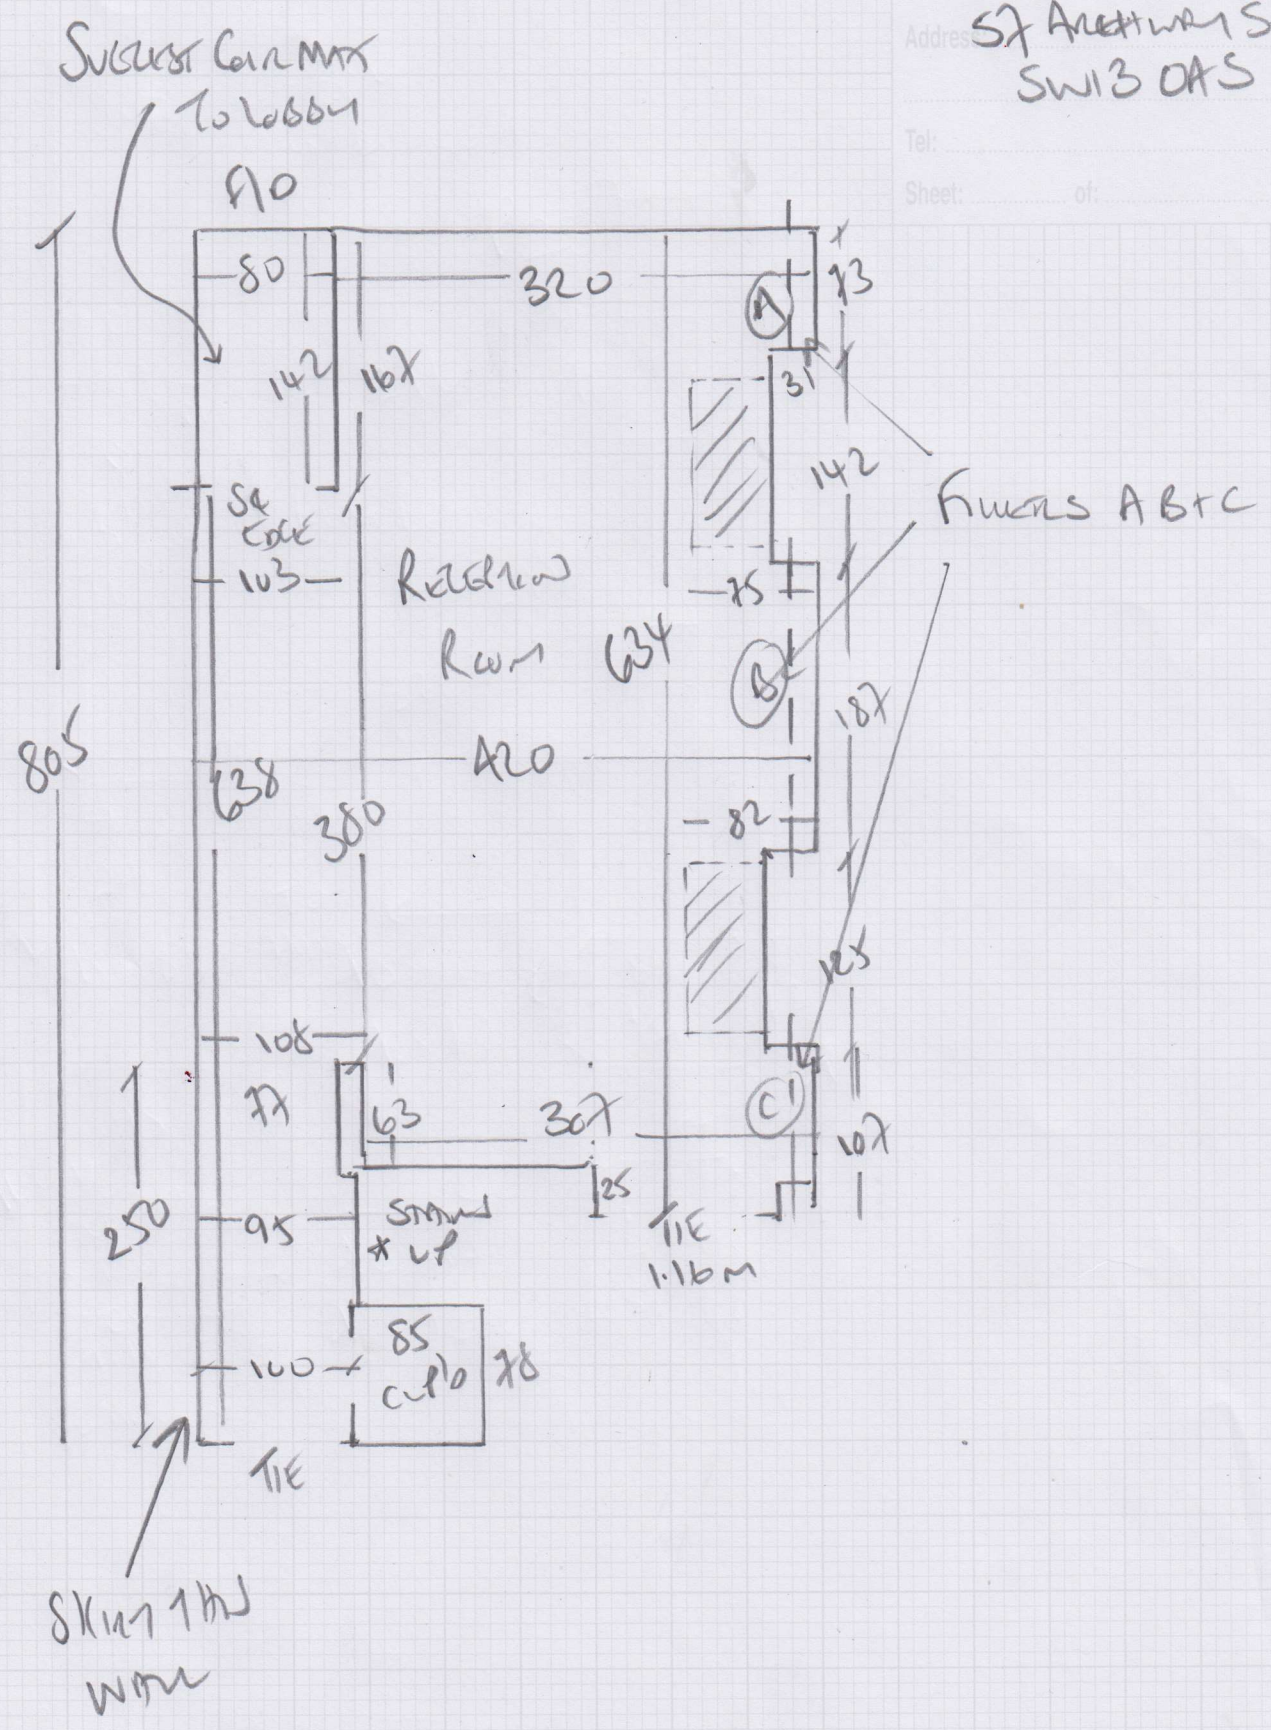 Address: 57 ARCHWAY S
SW13 0AS
Tel:
Sheet: of:
SUGGEST COIR MAT
TO LOBBY
F/D
80
320
73
A
142
167
31
142
SQ
EDGE
FILLERS A B + C
103
RECEPTION
75
ROOM
634
B
187
805
420
638
82
380
125
108
77
63
307
C
107
250
95
STAIRS
* UP
25
TIE
1.16 M
100
85
CUP'D
78
TIE
SKIM THIS
WALL